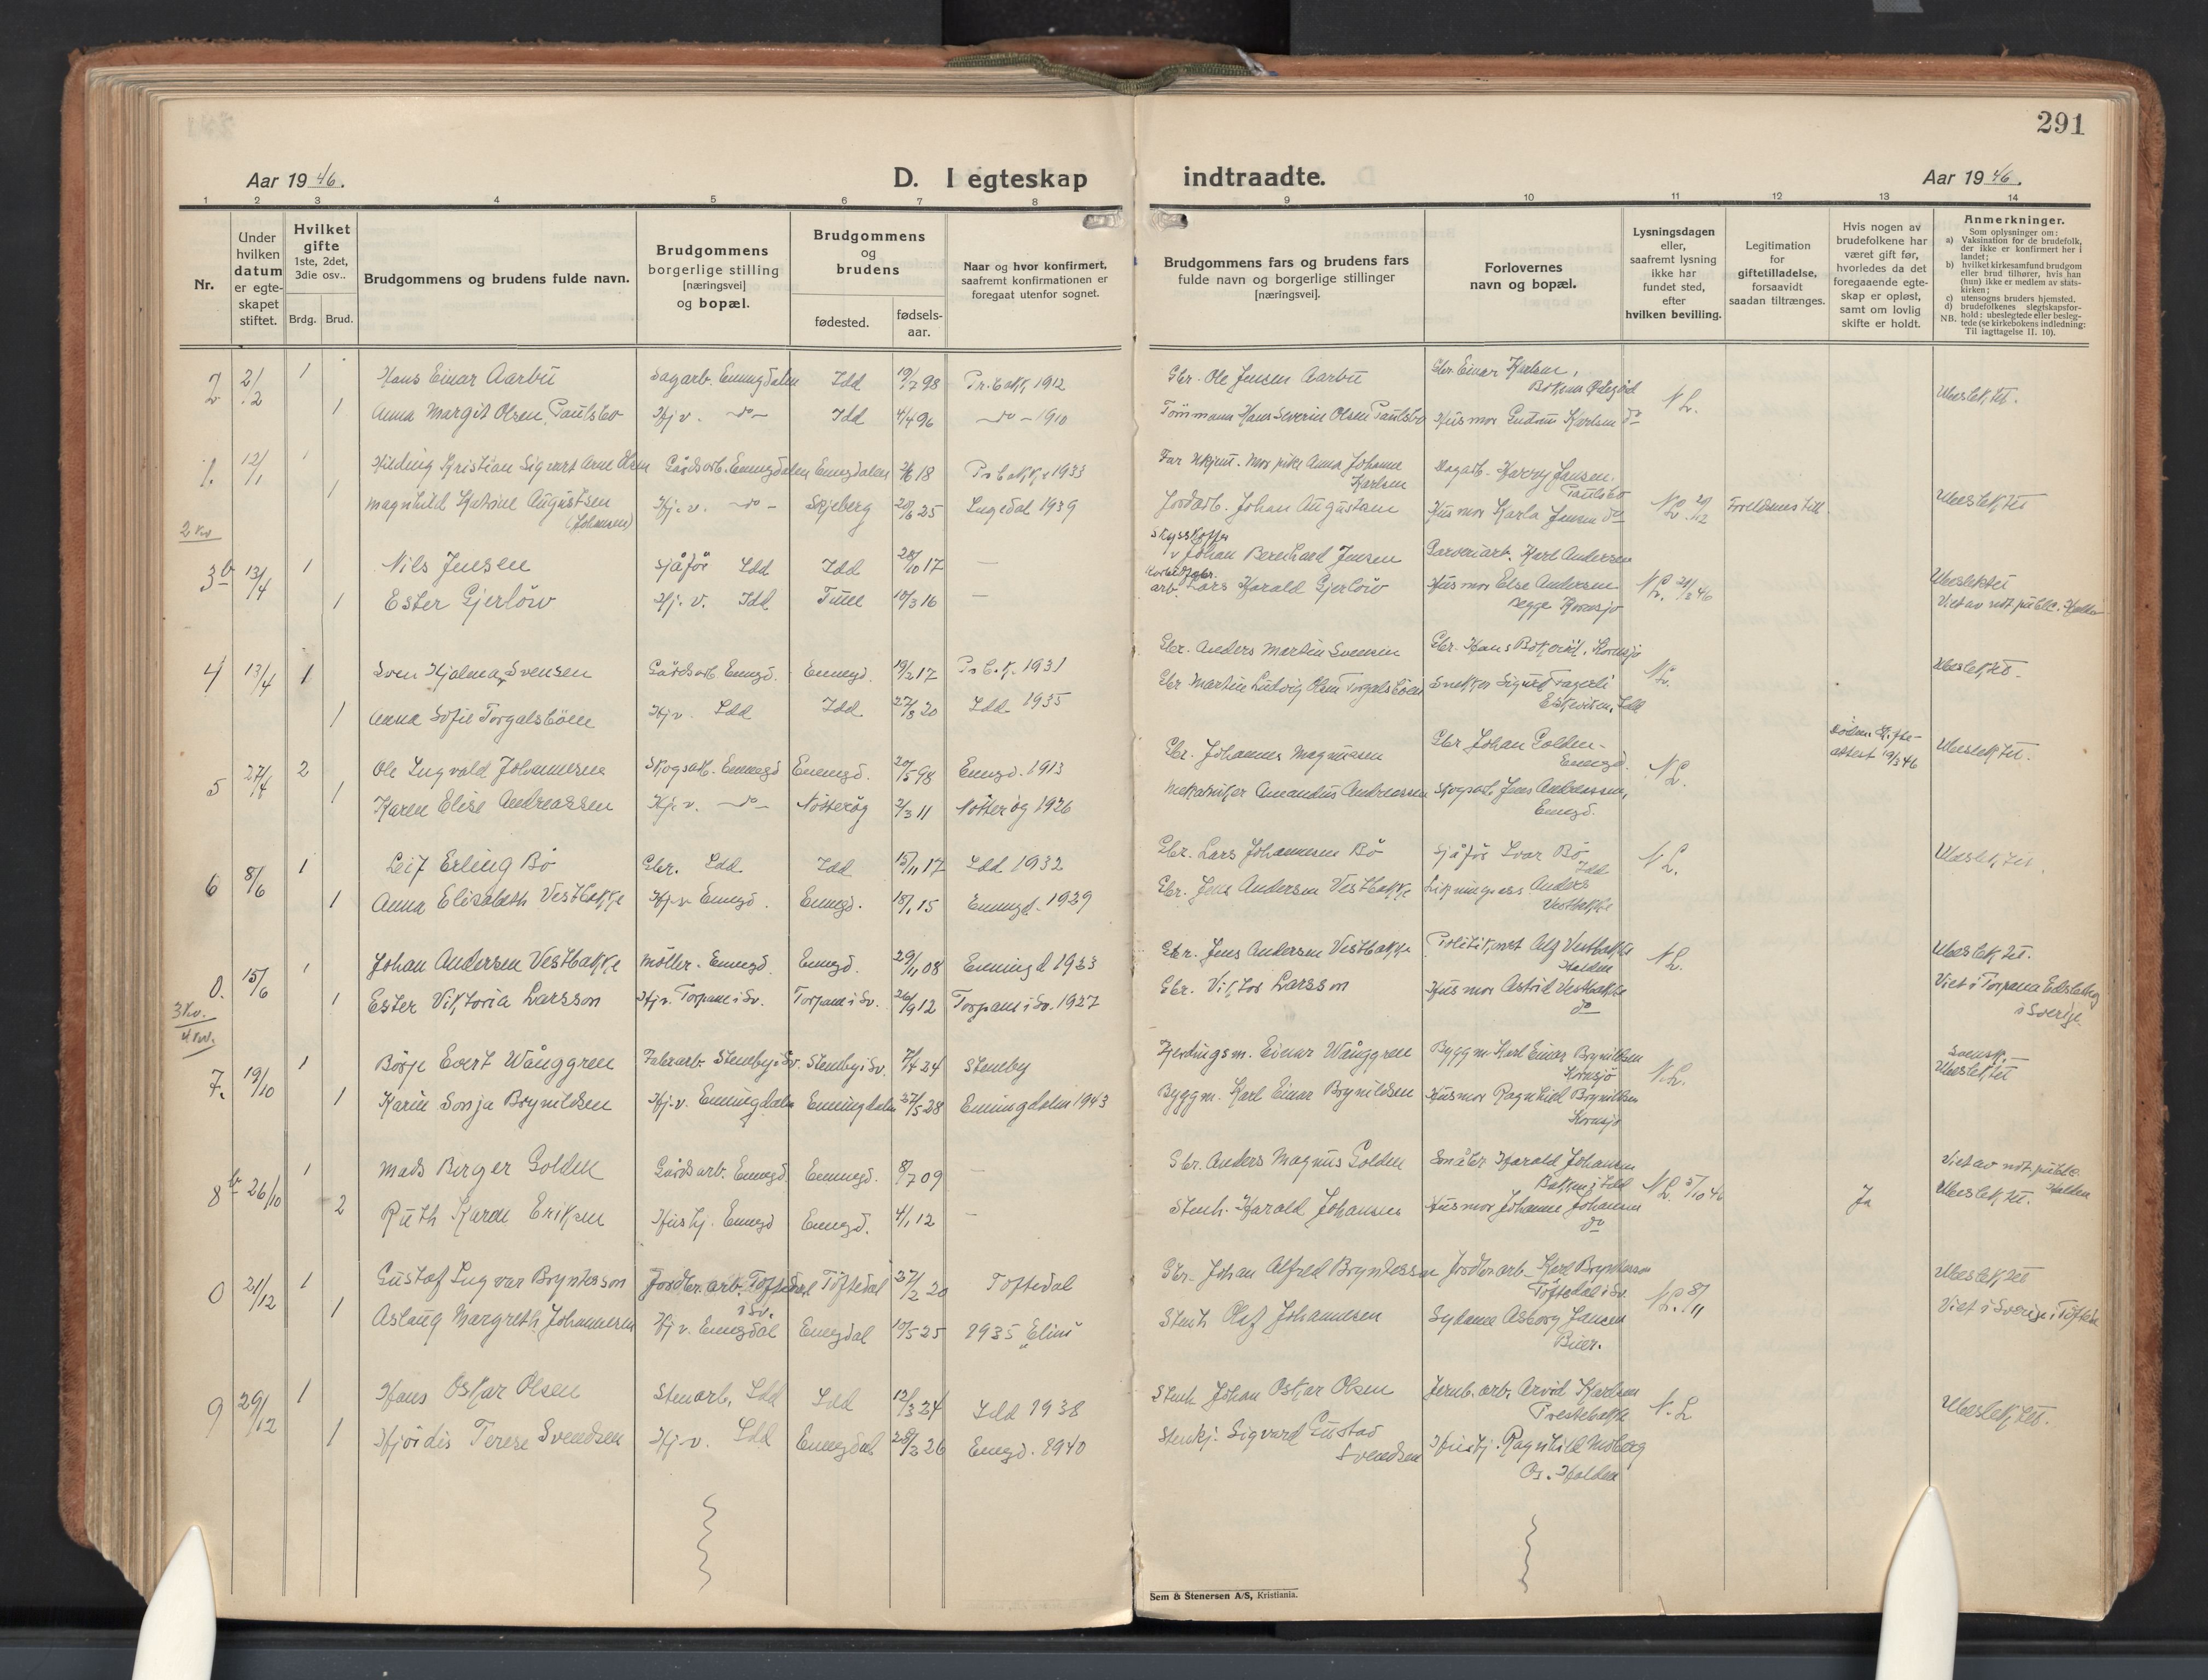 291
Aar 1946.
D. I egteskap indtraadte.
Aar 1946.
1 2 3 4 5 6 7 8 9 10 11 12 13 14
Nr.
Under hvilken datum er egteskapet stiftet.
Hvilket gifte 1ste, 2det, 3die osv..
Brdg. Brud.
Brudgommens og brudens fulde navn.
Brudgommens borgerlige stilling [næringsvei] og bopæl.
Brudgommens og brudens
fødested. fødsels-aar.
Naar og hvor konfirmert, saafremt konfirmationen er foregaat utenfor sognet.
Brudgommens fars og brudens fars fulde navn og borgerlige stillinger [næringsvei].
Forlovernes navn og bopæl.
Lysningsdagen eller, saafremt lysning ikke har fundet sted, efter hvilken bevilling.
Legitimation for giftetilladelse, forsaavidt saadan tiltrænges.
Hvis nogen av brudefolkene har været gift før, hvorledes da det foregaaende egteskap er opløst, samt om lovlig skifte er holdt.
Anmerkninger.
Som oplysninger om:
a) Vaksination for de brudefolk, der ikke er konfirmert her i landet;
b) hvilket kirkesamfund brudgom eller brud tilhører, hvis han (hun) ikke er medlem av statskirken;
c) utensogns bruders hjemsted.
d) brudefolkenes slegtskapsforhold: ubeslegtede eller beslegtede (se kirkebokens indledning: Til iagttagelse II. 10).
NB.
2 2/2 1 Hans Einar Aarbu Sagarb. Enningdalen Idd 19/7 98 Pr.bakk. 1912 Gbr. Ole Jensen Aarbu Gbr. Einar Karlsen, N.L. Ubeslektet.
1 Anna Margit Olsen Paulsbo Hj v. -do- Idd 4/4 96 -do- 1910 Tømmermann Hans Severin Olsen Paulsbo Husmor Gudrun Karlsen do
1. 12/1 1 Hilding Kristian Sigvart Arne Olsen Gårdsarb. Enningdalen Enningdalen 18 Pr.bakke 1933 Far ukjent. Mor pike Anna Johanne Karlsen Sagarb. Harry Jansen, Paulsbo
1 Magnhild Katrine Augustsen (Johansen) Hj. v. -do- Skjeberg 20/6 25 Ingedal 1939 Jordarb. Johan Augustsen Husmor Karla Jensen do N.L. 29/12 Foreldrenes till. Ubeslektet
2 kv
3 b 13/4 1 Nils Jensen Sjåfør Idd Idd 28/10 17 — Johan Bernhard Jensen Garveriarb. Karl Andersen
1 Ester Gjerløw Hj. v. Idd Tune 10/3 16 — arb. Lars Harald Gjerløw Husmor Else Andersen begge Kornsjø N.L. 21/2 46 Ubeslektet Viet av not. public. Halden
4 13/4 1 Sven Hjalmar Svensen Gårdsarb Enngd. Enningd. 19/2 17 Pr.b.k. 1931 Gbr. Anders Martin Svensen Gbr. Hans Bokerød, Kornsjø N.L. Ubeslektet.
1 Anna Sofie Torgalsbøen Hj v. Idd Idd 27/8 20 Idd 1935 Gbr Martin Ludvig Olsen Torgalsbøen Snekker Sigurd Fagerli Idd
5 27/4 2 Ole Ingvald Johannesen Skogsarb. Enningd Enningd. 20/5 98 Enngd. 1913 Gbr. Johannes Magnussen Gbr Johan Golden Enningd. N.L. Skifteattest 19/3 46 Ubeslektet.
1 Karen Elise Andreassen Hj. v. -do- Nøtterøy 2/3 11 Nøtterøy 1926 Mekaniker Amandus Andreassen Skogsarb. Jens Andreassen, Enngd.
6 8/6 1 Leif Erling Bø Gbr. Idd Idd 15/11 17 Idd 1932 Gbr. Lars Johannesen Bø Sjåfør Ivar Bø Idd N.L. Ubeslektet
1 Anna Elisabeth Vestbakke Hj v Enngd. Enngd. 18/1 15 Enningd. 1929 Gbr. Jens Andersen Vestbakke Ligningsass Anders Vestbakke
0. 15/6 1 Johan Andersen Vestbakke Møller. Enningd. Enngd. 29/11 08 Enningd 1923 Gbr. Jens Andersen Vestbakke Politikonst Alf Vestbakke Halden N.L. Ubeslektet.
1 Ester Viktoria Larsson Hj v. Torpane i Sv. Torpane i Sv. 26/9 12 Torpane i Sv. 1927 Gbr. Viktor Larsson Husmor Astrid Vestbakke do Viet i Torpane Edsleskog i Sverige.
3 kv.
4 kv.
7. 19/10 1 Börje Evert Wånggren Fabr.arb. Steneby i Sv. Steneby i Sv. 7/7 24 Steneby Fjerdingsm. Einar Wånggren Byggm. Karl Einar Brynildsen Kornsjø N.L. Svensk. Ubeslektet
1 Karin Sonja Brynildsen Hj. v. Enningdalen Enningdalen 27/5 28 Enningdalen 1943 Byggm. Karl Einar Brynildsen Husmor Ragnhild Brynildsen Kornsjø
8 b 26/10 1 Mads Berger Golden Gårdsarb. Enngd. Enningd. 8/7 09 — Gbr. Anders Magnus Golden Småbr. Harald Johansen Bakken i Idd N.L. 5/10 46 Viet av not. public Halden
2 Ruth Karen Eriksen Hushj. Enngd Enngd. 4/1 12 — Stenh. Harald Johansen Husmor Johanne Johansen do Ja Ubeslektet.
0 21/12 1 Gustaf Ingvar Bryntesson Jordbr. arb. Töftedal i Sv. Töftedal 27/2 20 Töftedal Gbr. Johan Alfred Bryntesson Jordbr.arb. Karl Bryntesson Töftedal i Sv. N.L. 8/11 Ubeslektet
1 Aslaug Margreth Johannesen Hj v. Enngdal Enngdal 10/5 25 1935 "Elim" Stenh Olaf Johannesen Sydame Asborg Jansen Bier. Viet i Sverige i Töftedal
9 29/12 1 Hans Oskar Olsen Stenarb. Idd Idd 12/3 24 Idd 1938 Stenh Johan Oskar Olsen Jernb. arb. Arvid Karlsen Prestebakke N.L Ubeslektet.
1 Hjørdis Terese Svendsen Hj v. Idd Enngdal 28/3 26 Enngd. 1940 Stenhj. Sigvard Gustav Svendsen Hushj. Ragnhild Moberg Os. Halden
Sem & Stenersen A/S, Kristiania.